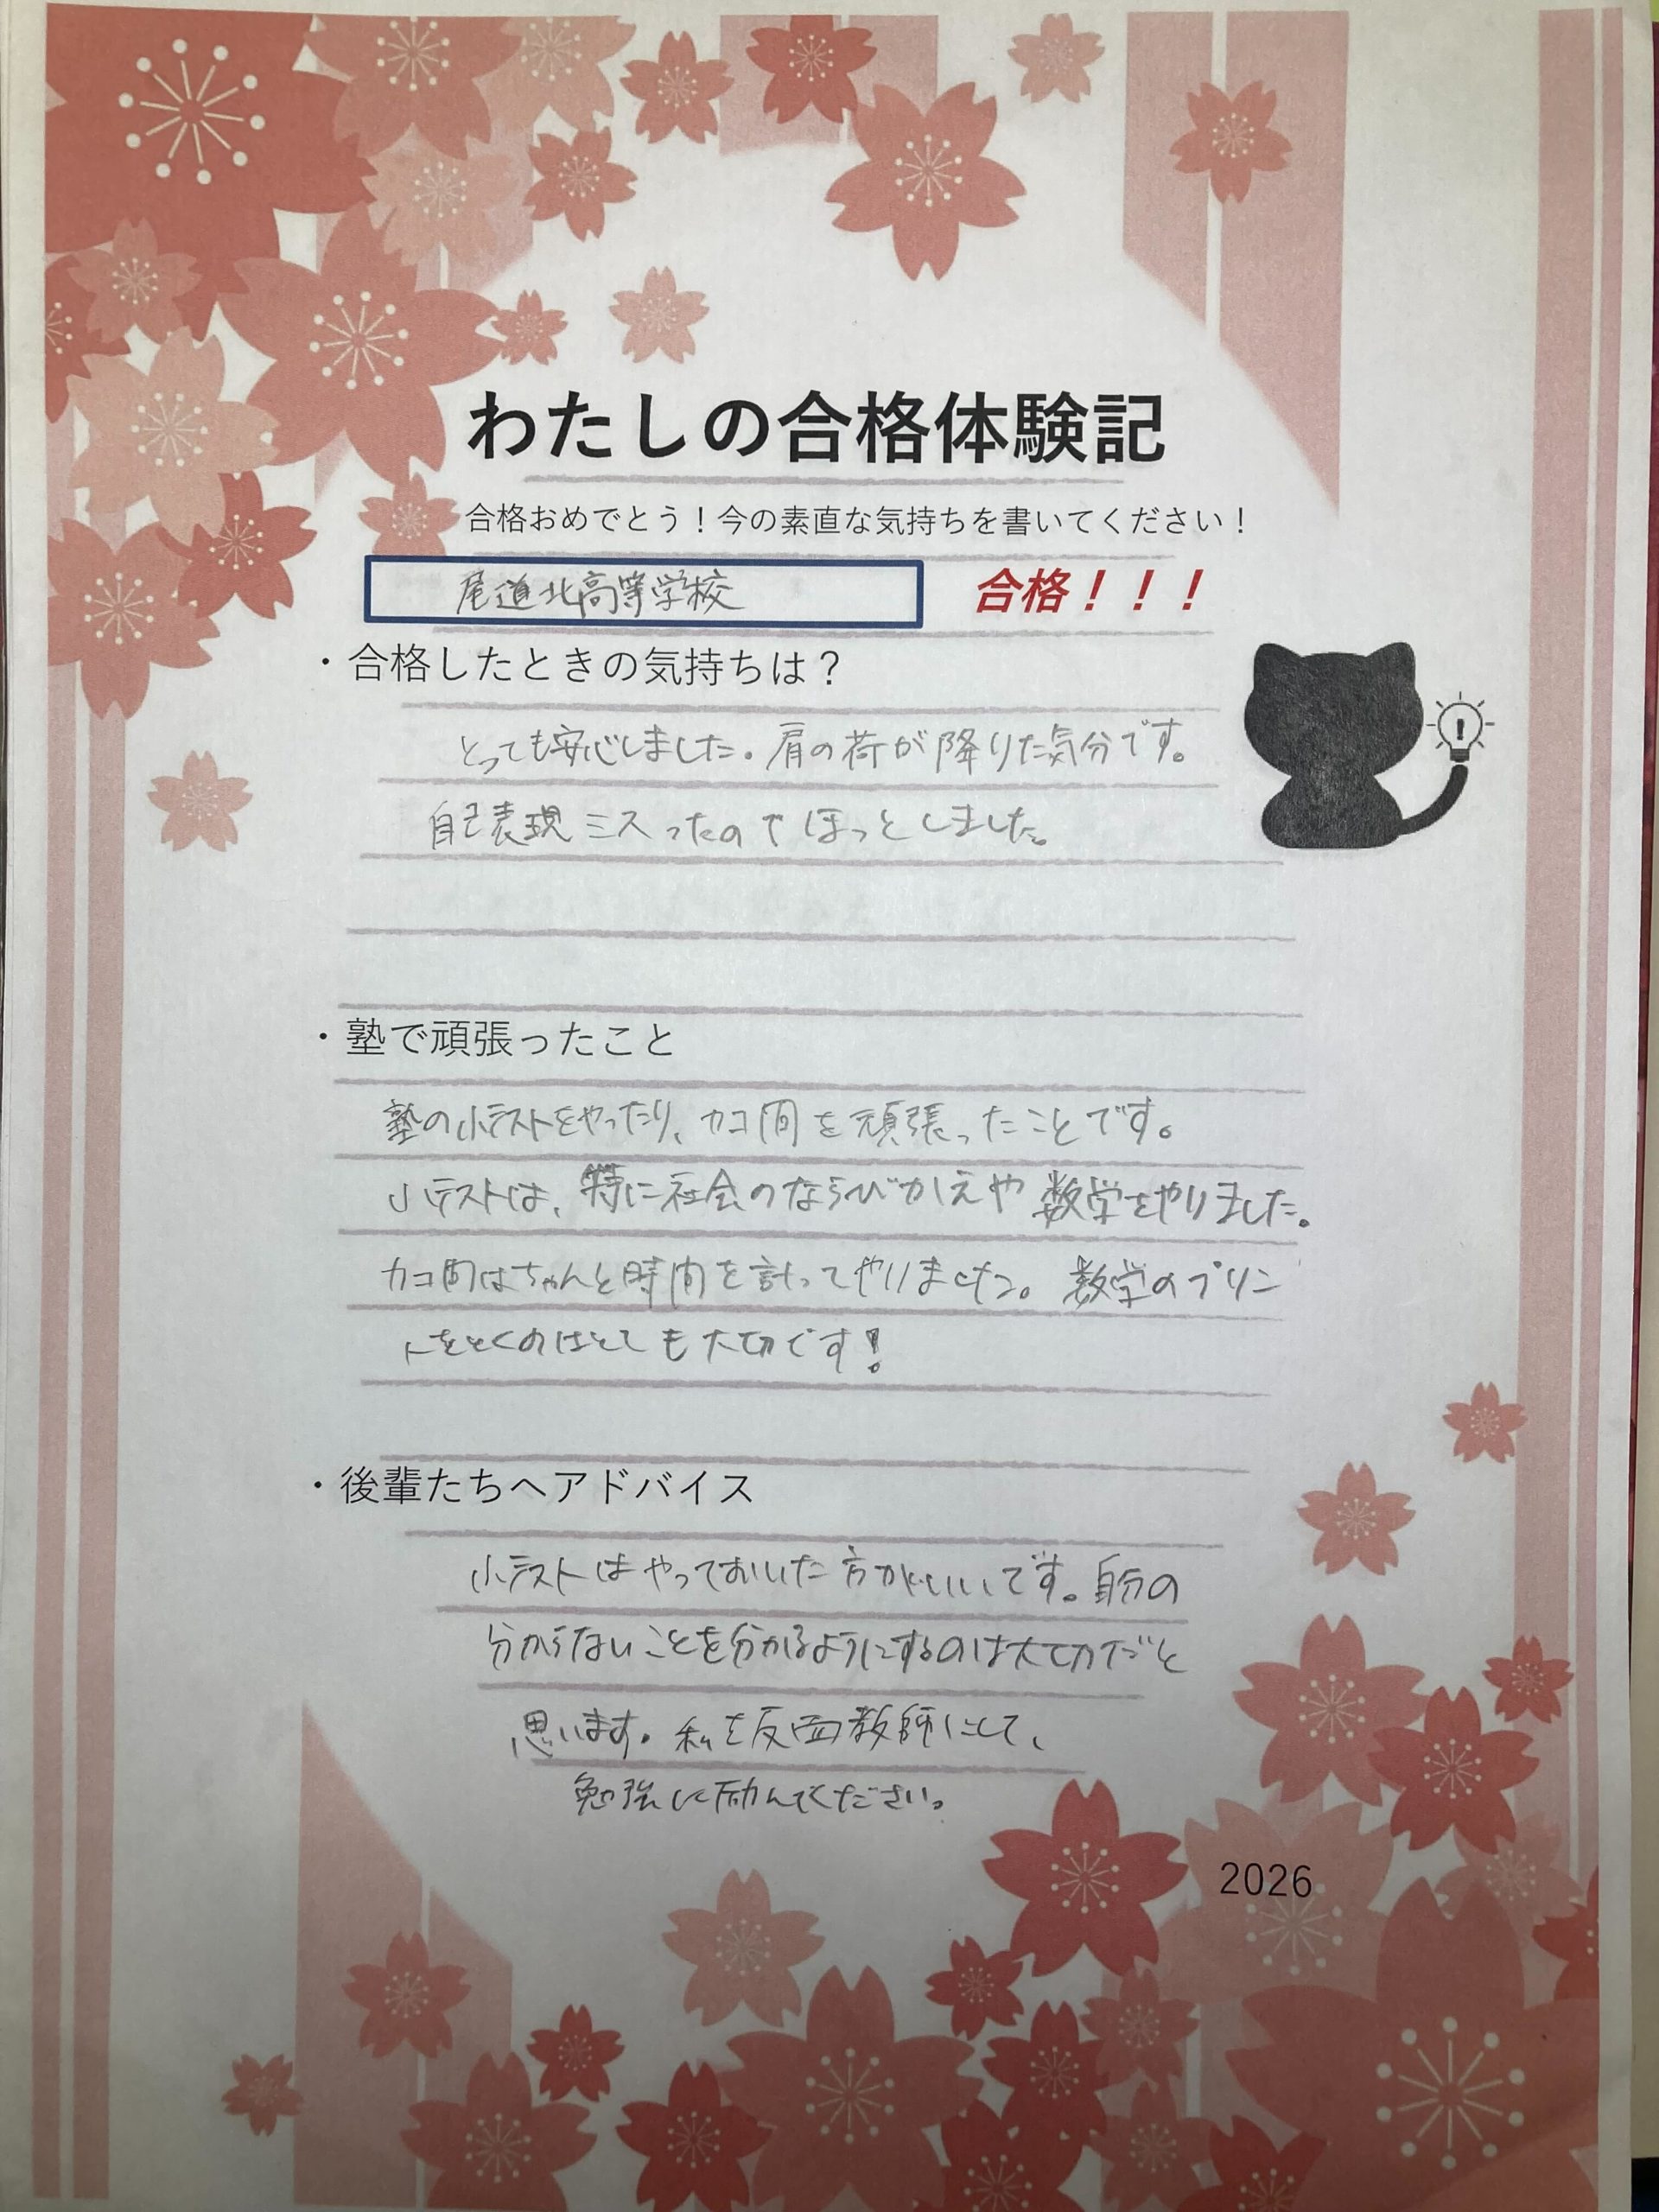 わたしの合格体験記
合格おめでとう！今の素直な気持ちを書いてください！
尾道北高等学校 合格！！！
・合格したときの気持ちは？
とっても安心しました。肩の荷が降りた気分です。
自己表現ミスったのでほっとしました。
・塾で頑張ったこと
塾の小テストをやったり、カコ問を頑張ったことです。
小テストは、特に社会のならびかえや数学をやりました。
カコ問はちゃんと時間を計ってやりました。数学のプリン
トをとくのはとても大切です！
・後輩たちへアドバイス
小テストはやっておいた方がいいです。自分の
分からないことを分かるようにするのは大切だと
思います。私を反面教師にして、
勉強に励んでください。
2026